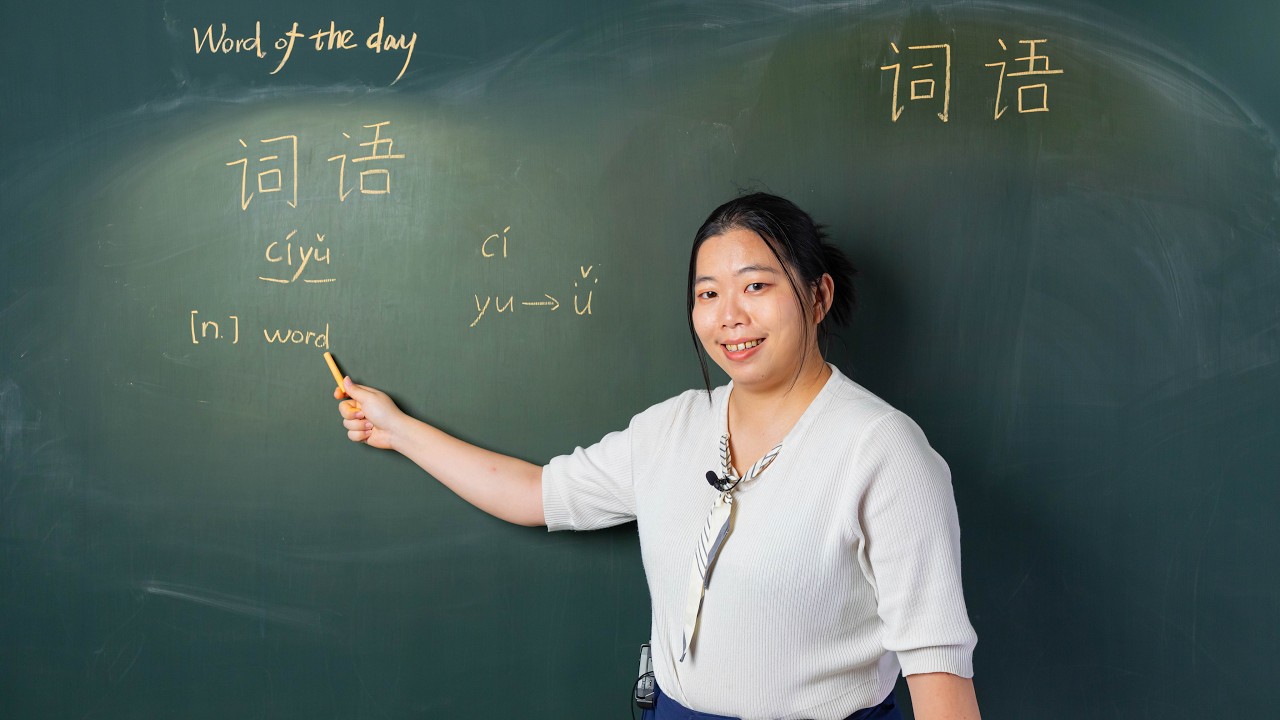 Word of the day
词语
cíyǔ
[n.] word
cí
yu → ǚ
词语